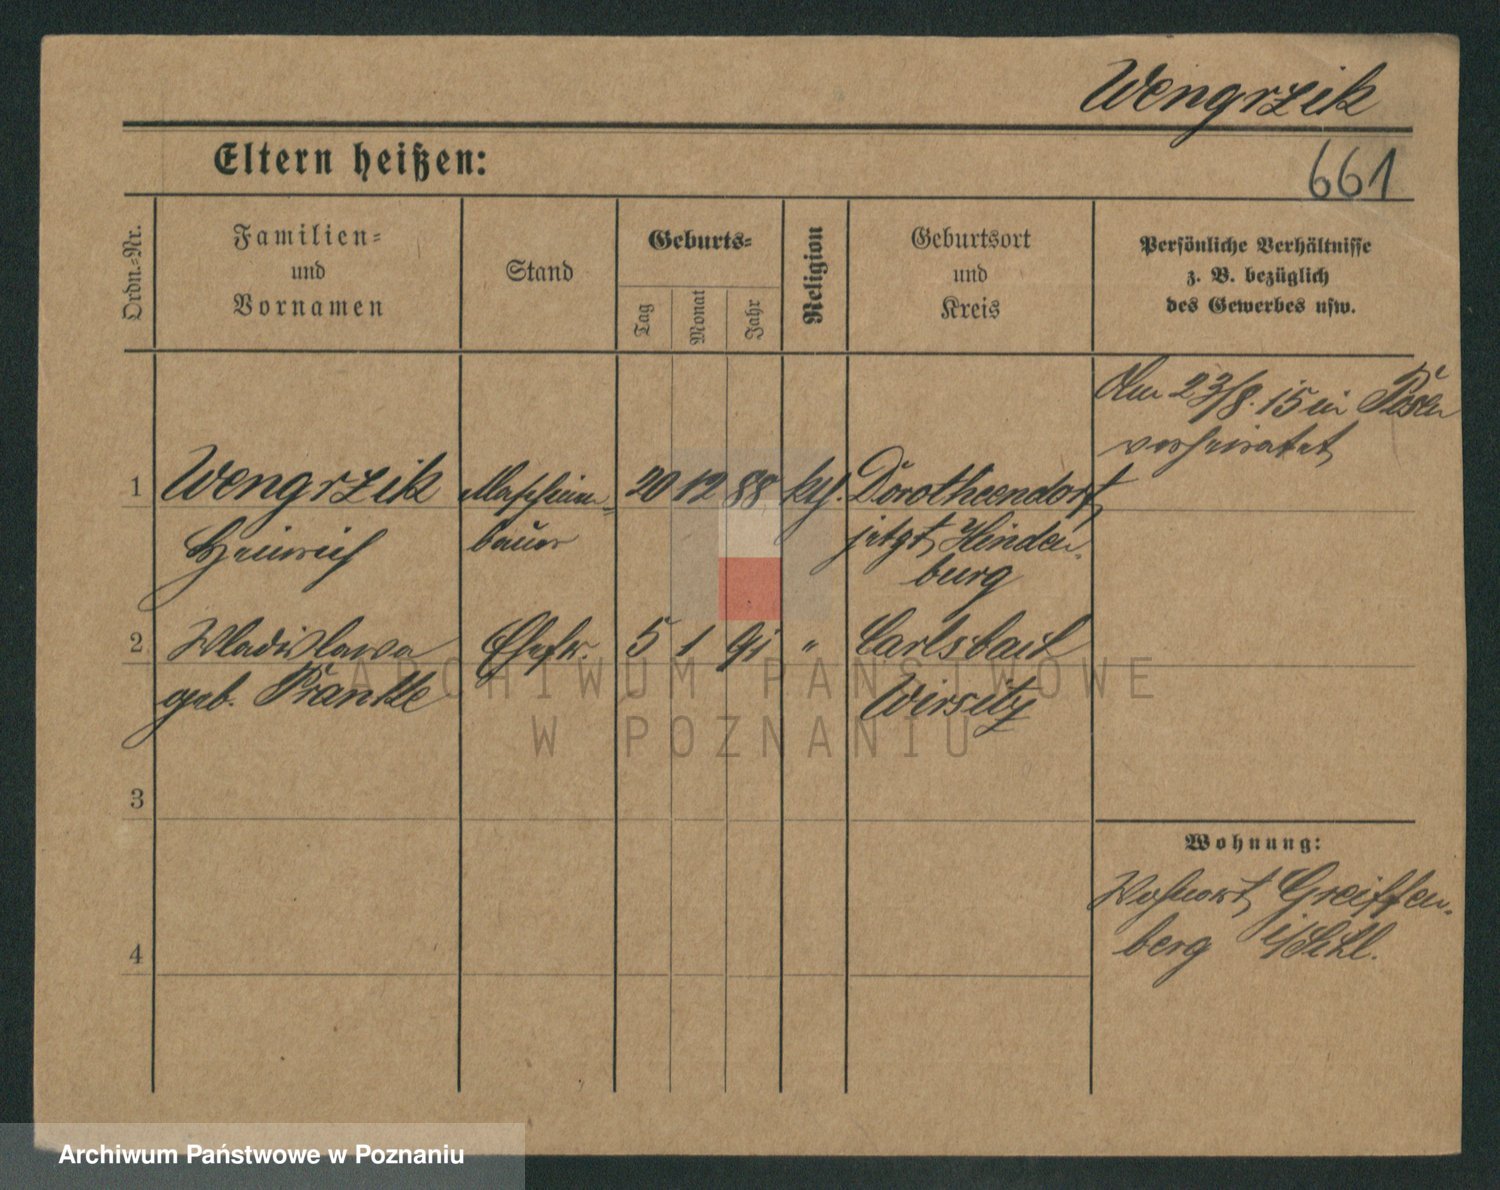 Wengrzik
Eltern heißen:
661
Ordn.-Nr.
Familien-
und
Vornamen
Stand
Geburts-
Tag
Monat
Jahr
Religion
Geburtsort
und
Kreis
Persönliche Verhältnisse
z. B. bezüglich
des Gewerbes usw.
Am 23/8.15 in Posen
verheiratet
1 Wengrzik Maschinen- 20 12 88 kth. Dorotheendorf
Heinrich bauer jetzt Hinden-
burg
2 Wladislawa Ehefr. 5 1 91 " Carlsbach
geb. Frankle Wirsitz
3
4
Wohnung:
Wohnort Greiffen-
berg i/Schl.
ARCHIWUM PAŃSTWOWE
W POZNANIU
Archiwum Państwowe w Poznaniu